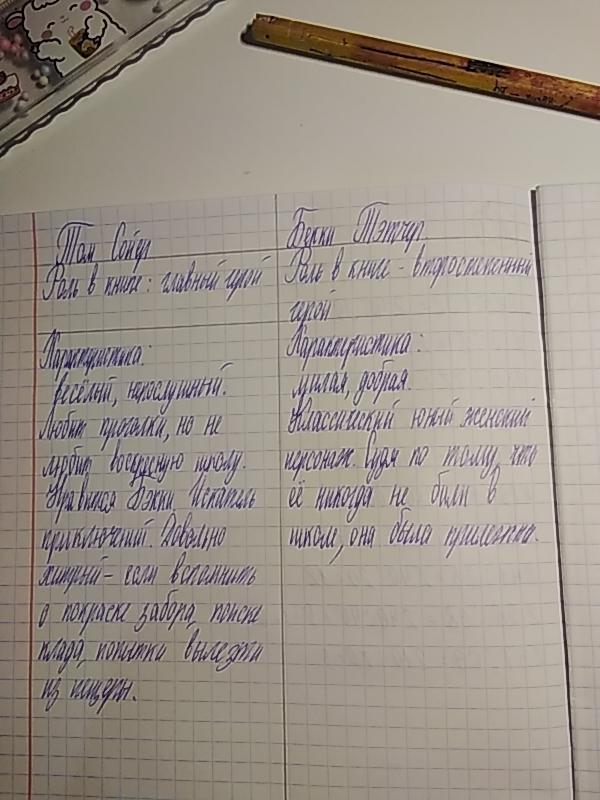 Том Сойер
Роль в книге: главный герой
Характеристика:
весёлый, непослушный.
Любит прогулки, но не
любит воскресную школу.
Нравится Бэкки. Искатель
приключений. Довольно
хитрый - если вспомнить
о покраске забора, поиске
клада, попытки вылезти
из пещеры.
Бекки Тэтчер
Роль в книге - второстепенный
герой
Характеристика:
милая, добрая.
Классический юный женский
персонаж. Судя по тому, что
её никогда не били в
школе, она была прилежна.